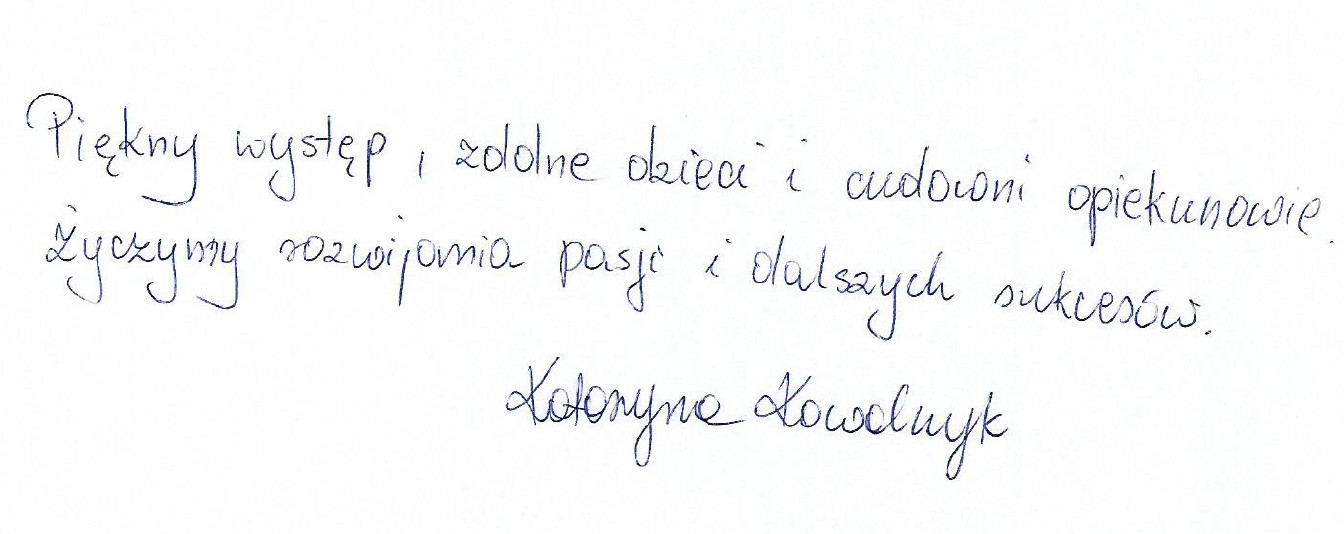 Piękny występ, zdolne dzieci i cudowni opiekunowie.
Życzymy rozwijania pasji i dalszych sukcesów.
Katarzyna Kowalczyk